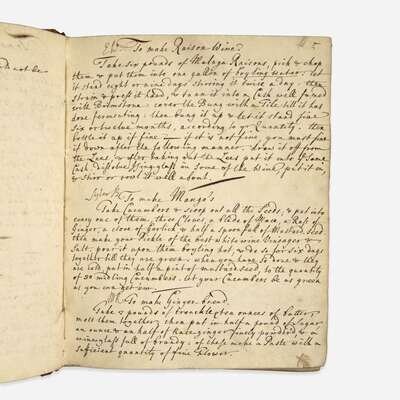 To make Raison Wine
5
Take six pounds of Malaga Raisons, pick & chop
them & put them into one gallon of boyling water: let
it stand eight or nine days stiring it twice a day, then
strain & press it hard, & tunn it into a Cask well fumed
with Brimstone cover the Bung with a Tile till it has
done fermenting: then bung it up & let it stand
six or twelve months, according to Quantity, then
bottle it up if fine if it is not fine, you must
it down after the following manner. draw it off from
the Lees, & after taking out the Lees put it into Same
Cask dissolve Isinglass in some of the Wine, put it in
& stir or rool it well about.
To make Mango's
Take Cucumbers & scoop out all the Seeds, & put into
every one of them, three Cloves, a Blade of Mace, a Rase of
Ginger, a clove of Garlick & half a spoonful of Mustard seed
then make your Pickle of the best white wine Vinegar &
Salt, pour it on them boyling hot, & do so for six days
together till they are green: when you have so done & they
are cold put in half a pint of mustard seed, to the quantity
of 50 midling Cucumbers. let your Cucumbers be as green
as you can get
To make Ginger bread.
Take 2 pounds of treackle & ten ounces of butter,
melt them together, then put in half a pound of Sugar
an ounce & an half of Race ginger finely pounded & a
wineglass full of brandy: of these make a Paste with a
sufficient quantity of fine flower.